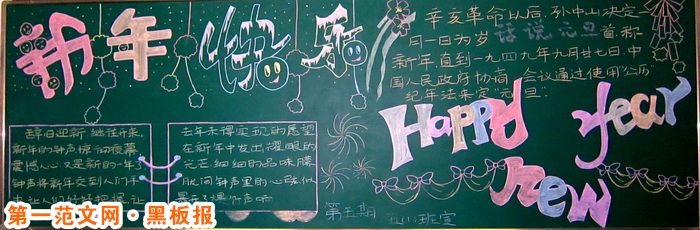 新年快乐
辛亥革命以后，孙中山决定
月一日为岁 话说元旦 首称
新年，直到一九四九年九月廿七日，中
国人民政府协商会议通过使用"公历"
纪年法来定"元旦"
Happy
year
new
辞旧迎新，继往开来，
新年的钟声惊动夜幕
震憾人心，又是新的一年了
钟声将新年交到人们手
去年未得实现的愿望
在新年中发出耀眼的
光芒，细细的品味
第五期
班宣
第一范文网·黑板报